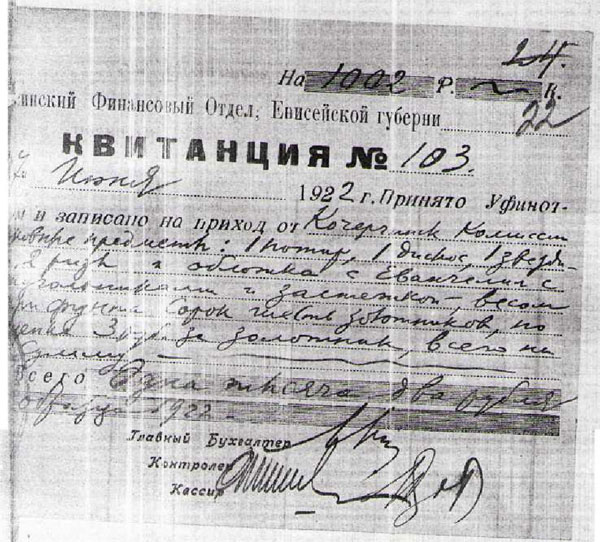 24.
На 1002 Р. ~ К.
22
инский Финансовый Отдел, Енисейской губернии
КВИТАНЦИЯ № 103.
Июня 1922 г. Принято Уфинот-
м и записано на приход от Кочергинск Комиссии
предметы: 1 потир, 1 дискос, 1 звезди-
2 ризы и обложка с Евангелия с
и застежкой, весом
фунта сорок шесть золотников, по
3 руб за золотник, всего на
сумму
Всего Одна тысяча два рубля
образца 1922
Главный Бухгалтер
Контролер
Кассир